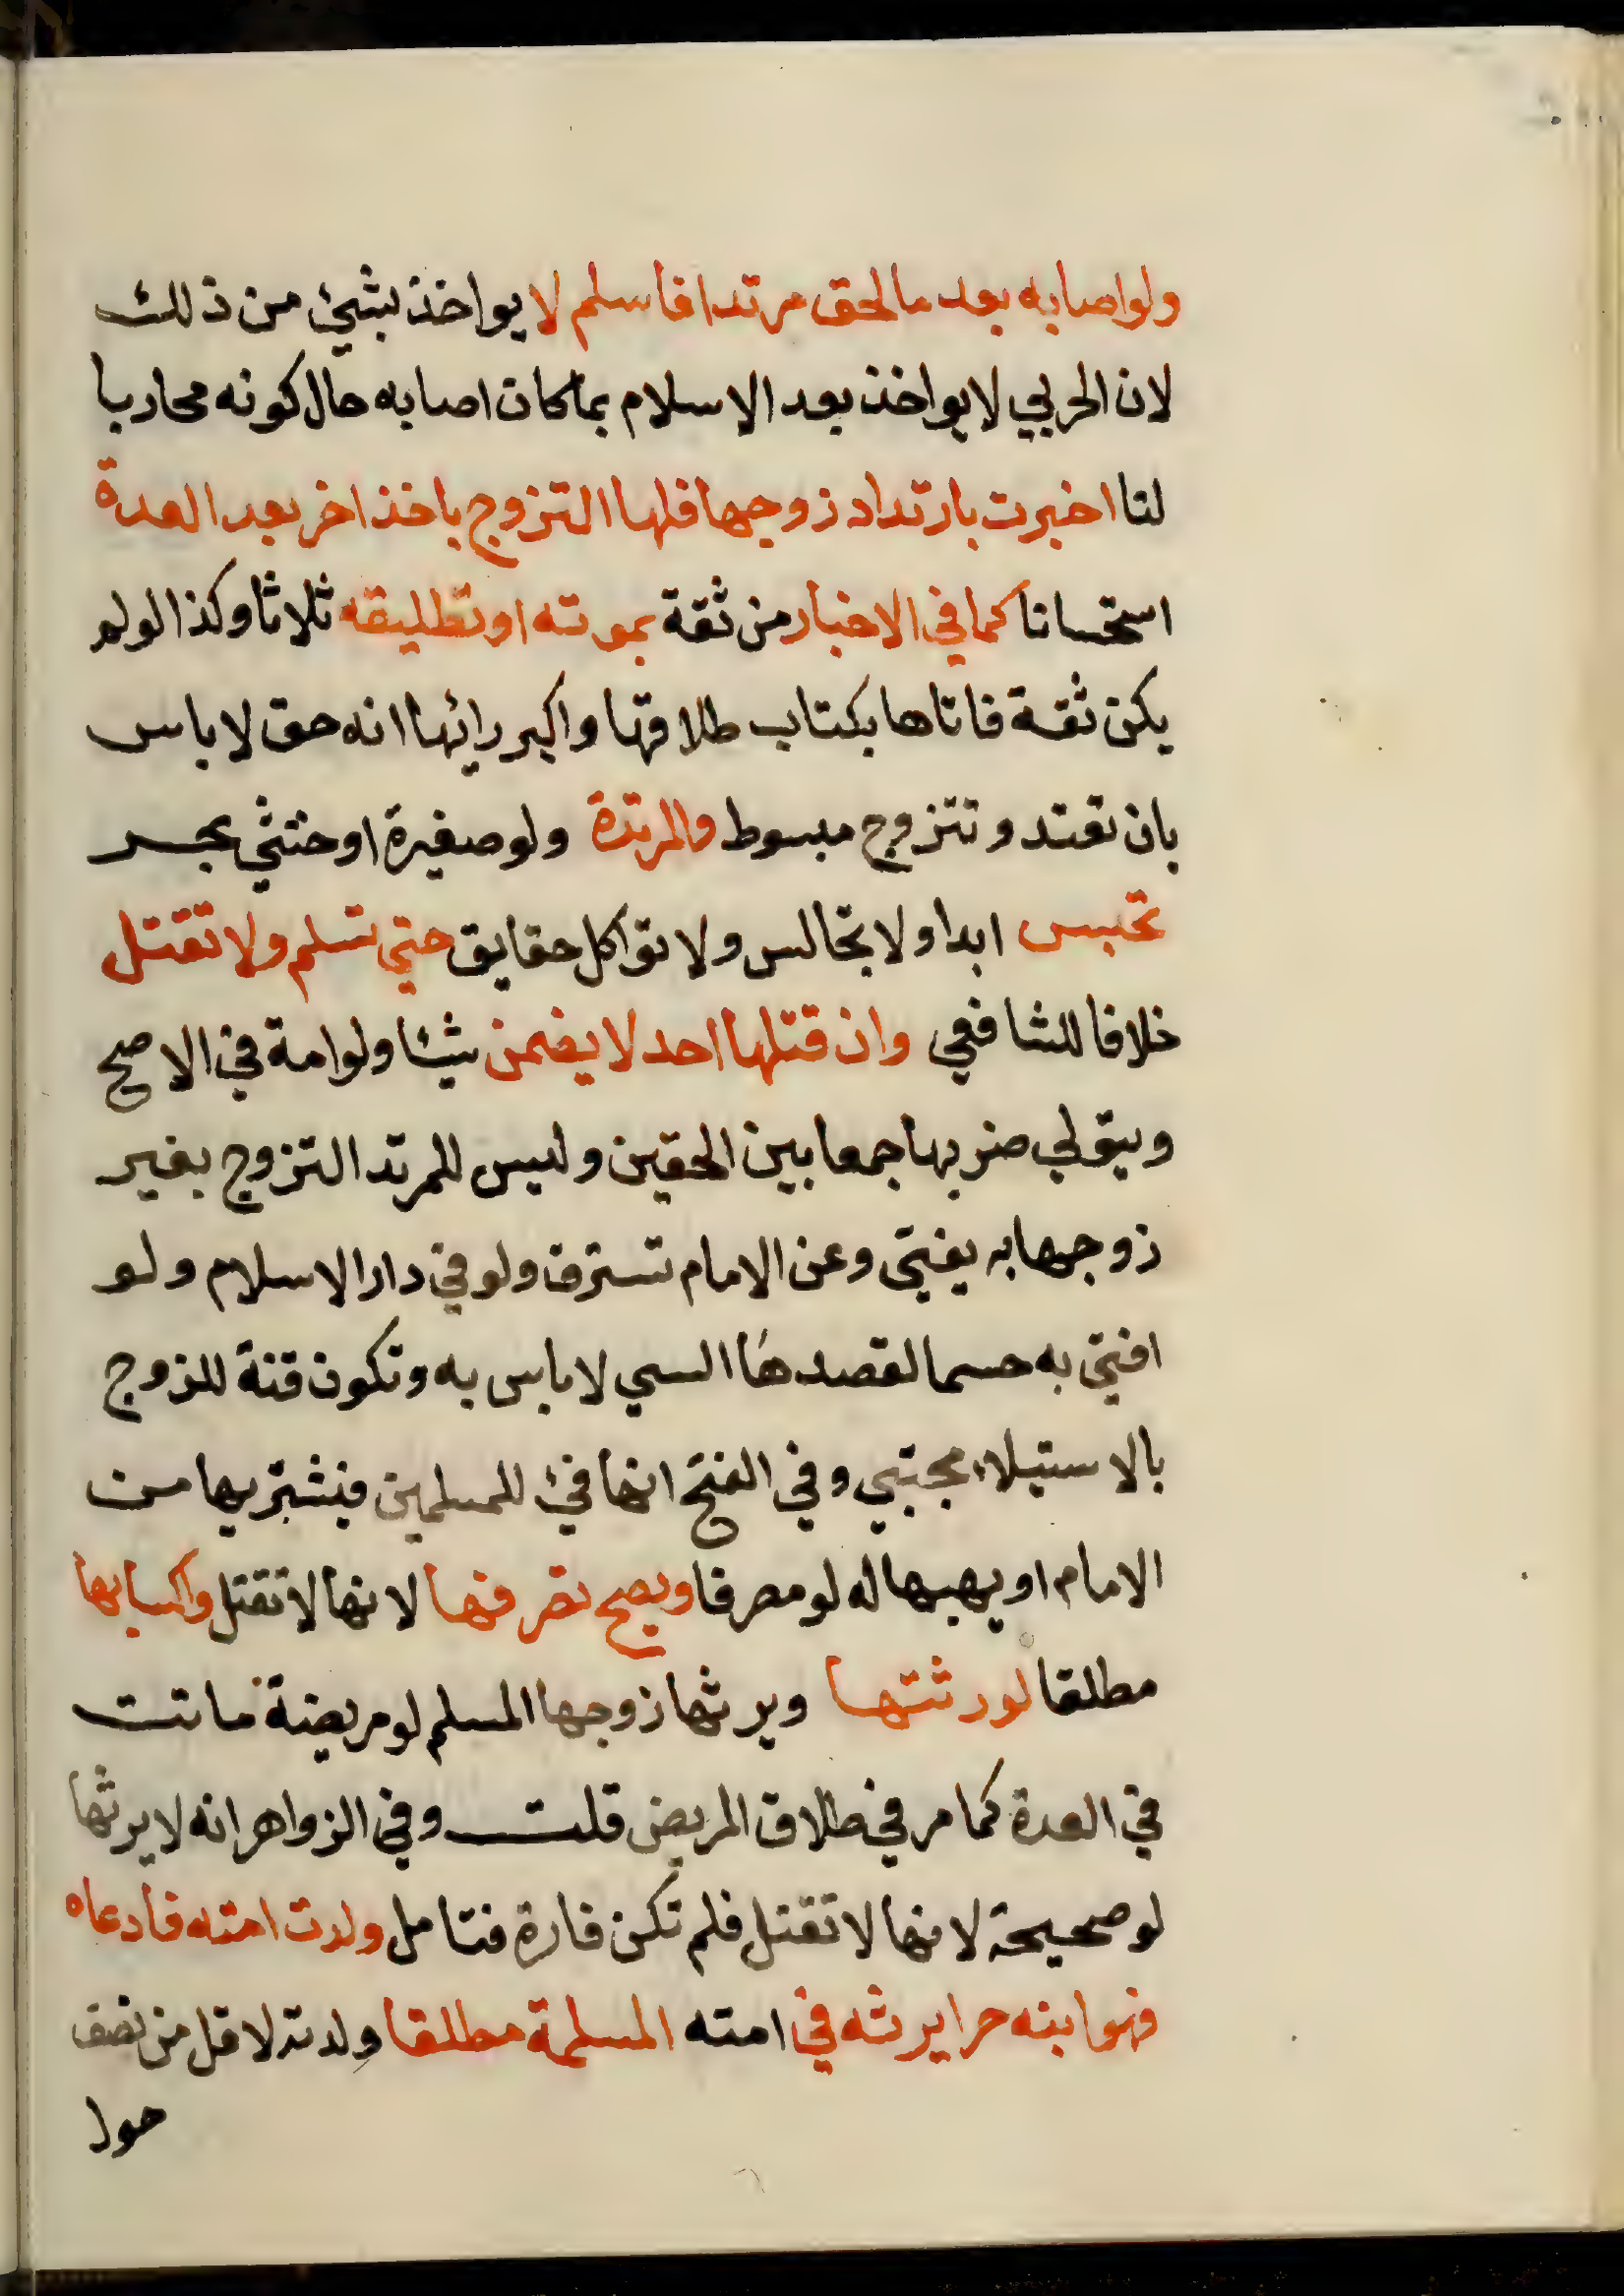 ولو اصابه بعد ما لحق مرتدا فاسلم لا يواخذ بشيء من ذلك
لان الحربي لا يواخذ بعد الاسلام بما كان اصابه حال كونه محاربا
لنا اخبرت بارتداد زوجها فلها التزوج باخذ اخر بعد العدة
استحسانا كما في الاخبار من ثقة بموته او تطليقه ثلاثا وكذا لو لم
يكن ثقة فاتاها بكتاب طلاقها واكبر رائها انه حق لا باس
بان تعتد وتتزوج مبسوط والمرتدة ولو صغيرة او خنثي بحر
تحبس ابدا ولا تجالس ولا تواكل حقايق حتي تسلم ولا تقتل
خلافا للشافعي وان قتلها احد لا يضمن شيئا ولو امة في الاصح
ويتولي ضربها جمعا بين الحقين وليس للمرتد التزوج بغير
زوجها به يفتي وعن الامام تسترق ولو في دار الاسلام ولو
افتي به حسما لقصدها السي لا باس به وتكون قنة للزوج
بالاستيلاء مجتبي وفي الفتح انها فيء للمسلمين فيشتريها من
الامام او يهبها له لو مصرفا ويصح تصرفها لانها لا تقتل واكسابها
مطلقا لورثتها ويرثها زوجها المسلم لو مريضة ماتت
في العدة كما مر في طلاق المريض قلت وفي الزواهر انه لا يرثها
لو صحيحة لانها لا تقتل فلم تكن فارة فتامل ولدت امته فادعاه
فهو ابنه حرا يرثه في امته المسلمة مطلقا ولدته لاقل من نصف
حول